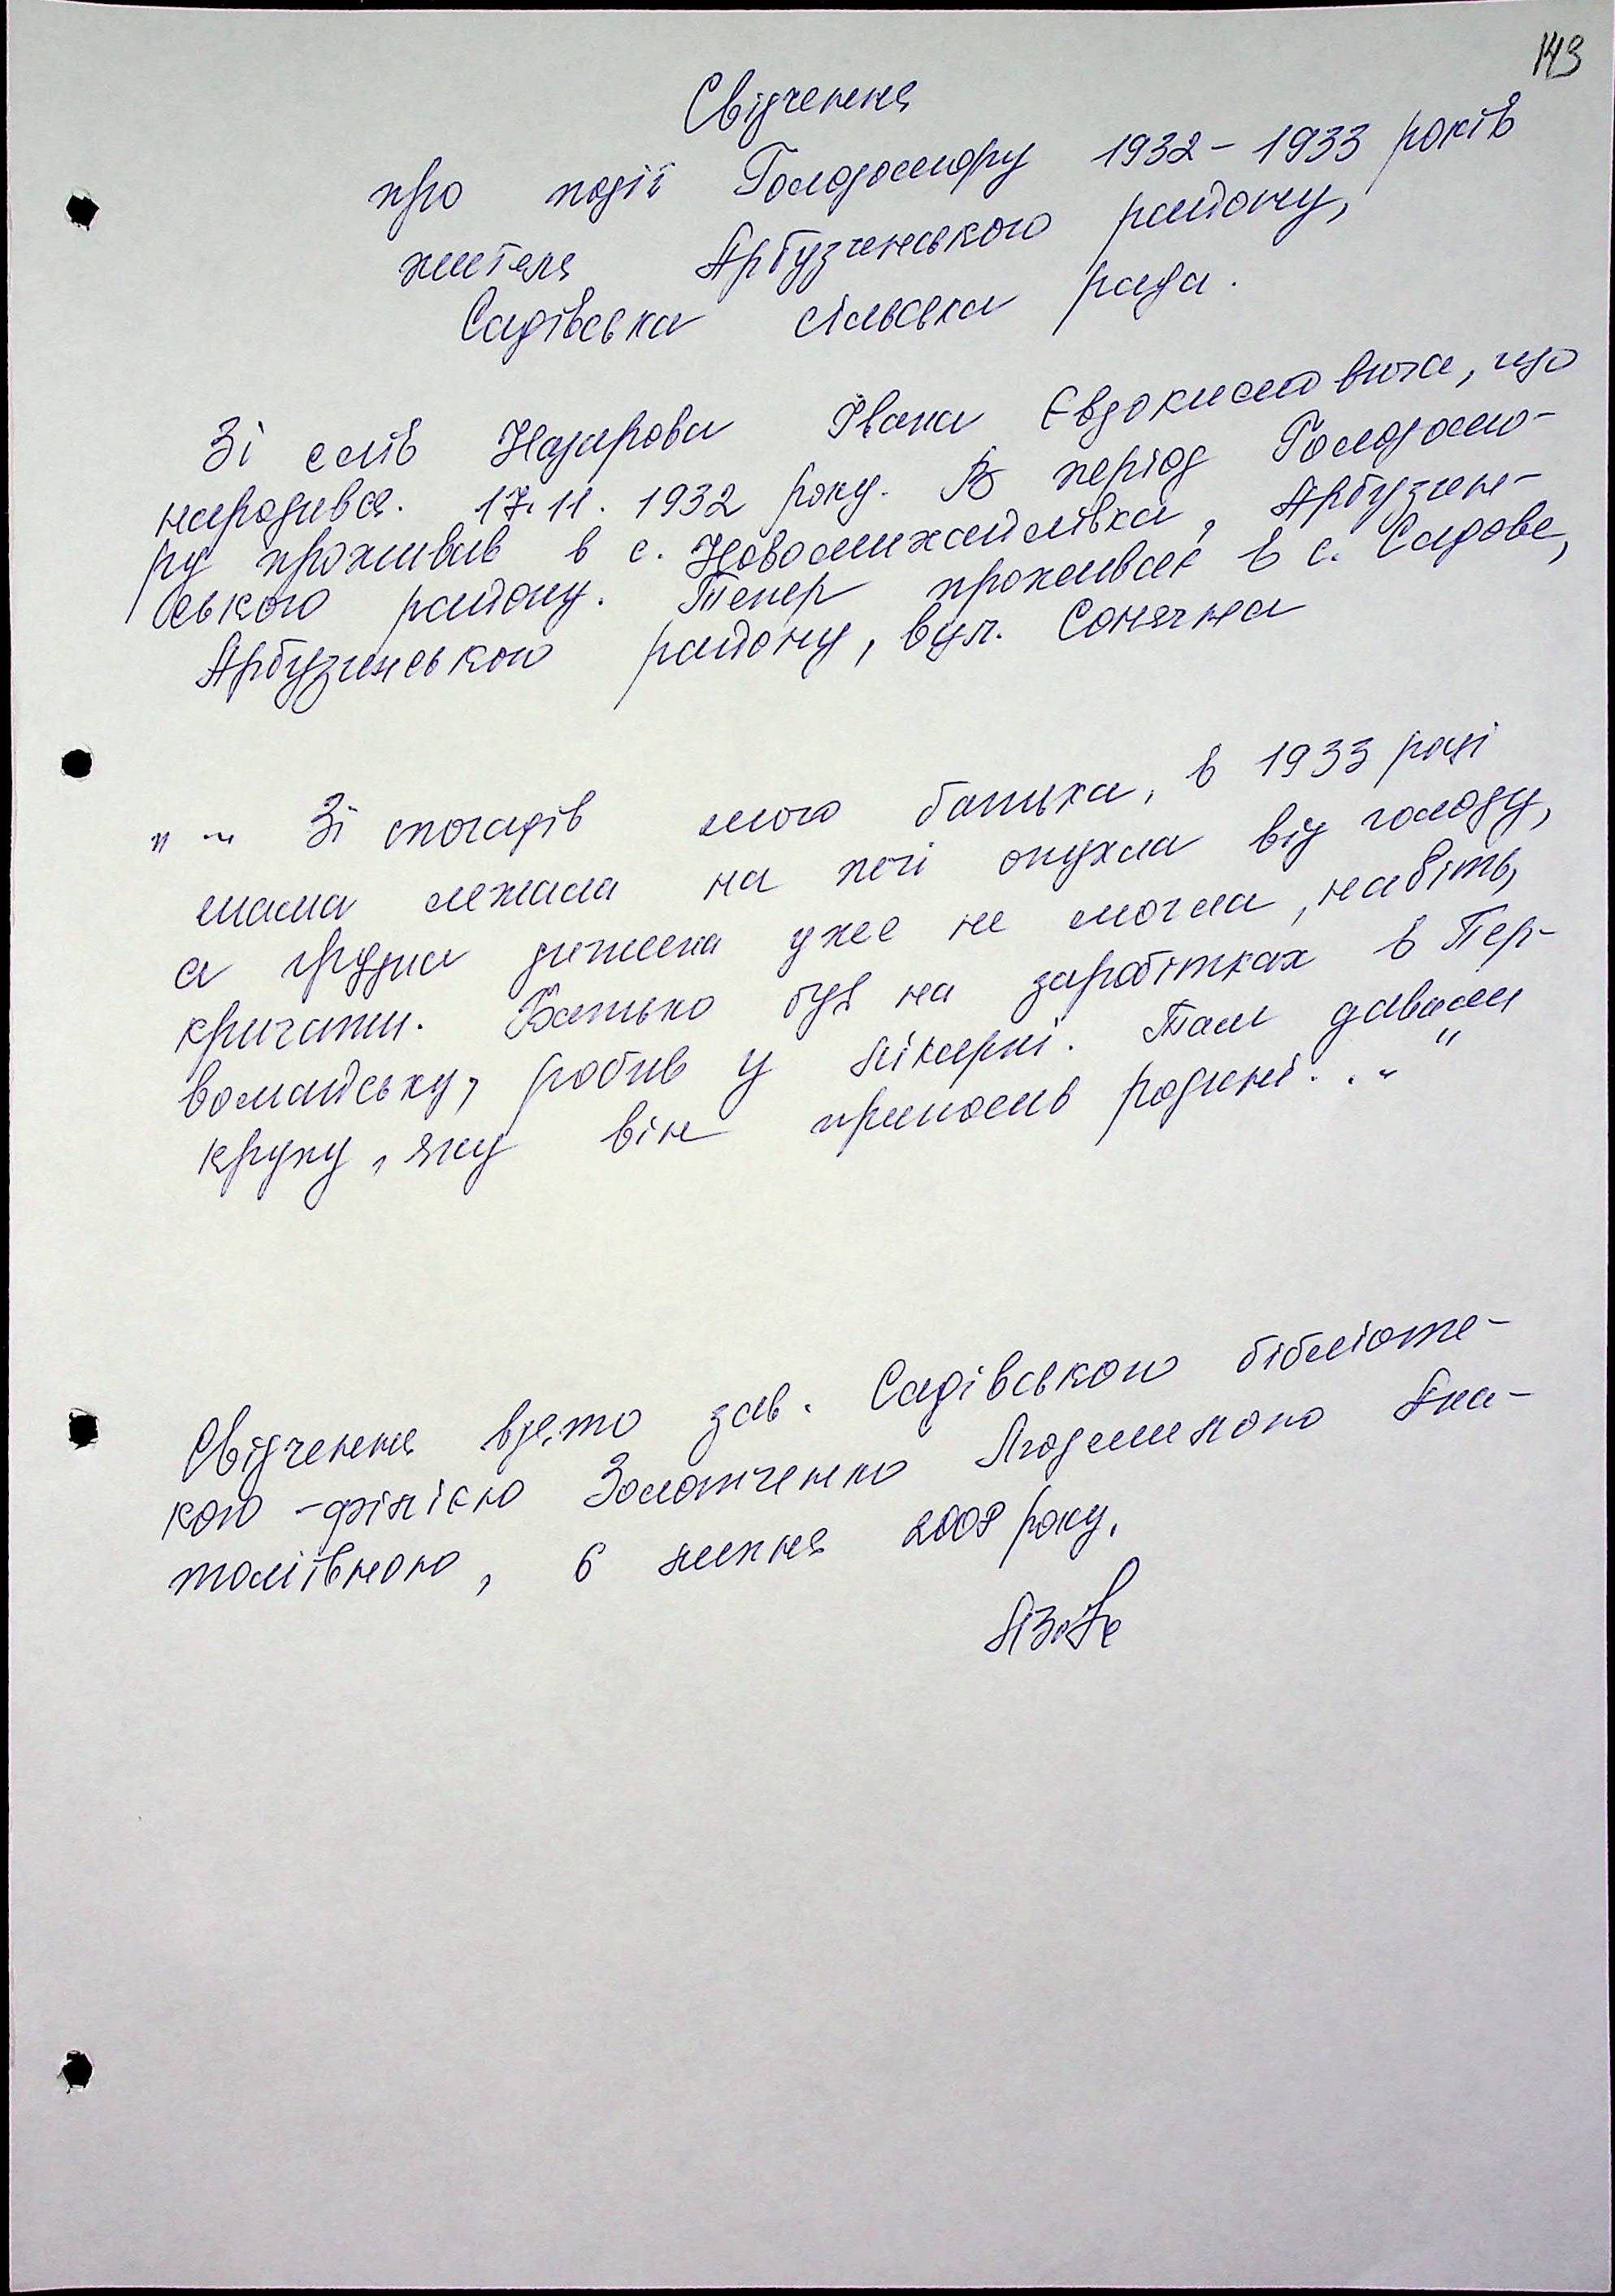 143
Свідчення
про події Голодомору 1932 - 1933 років
жителя Арбузинського району,
Садівська сільська рада.
Зі слів Назарова Івана Євдокимовича, що
народився. 17.11. 1932 року. В період Голодомо-
ру проживав в с. Новомихайлівка, Арбузин-
ського району. Тепер проживає в с. Садове,
Арбузинського району, вул. Сонячна
" ... Зі спогадів мого батька, в 1933 році
мама лежала на печі опухла від голоду,
а грудна дитина уже не могла, навіть,
кричати. Батько був на заробітках в Пер-
вомайську, робив у пікарні. Там давали
крупу, яку він приносив родині... "
Свідчення взято зав. Садівською бібліоте-
кою - філією Золотченко Людмилою Ана-
толіївною, 6 липня 2008 року.